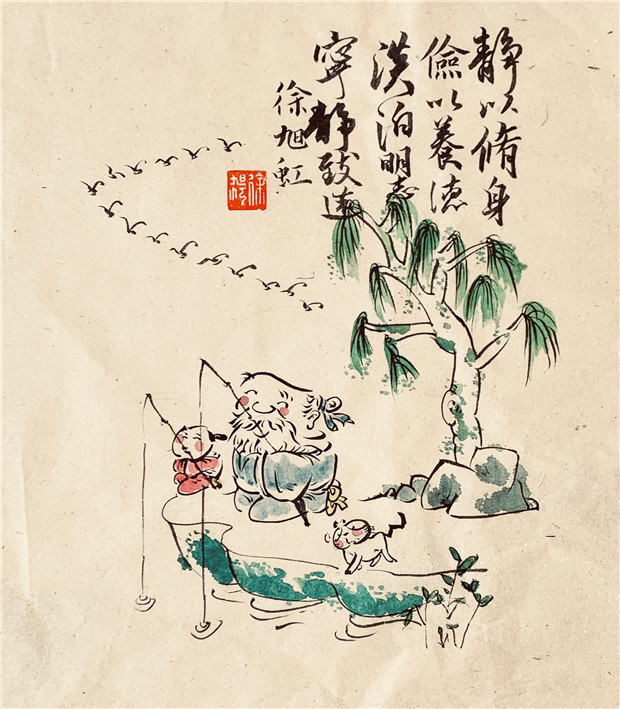 静以脩身
儉以養德
淡泊明志
寧静致遠
徐旭虹